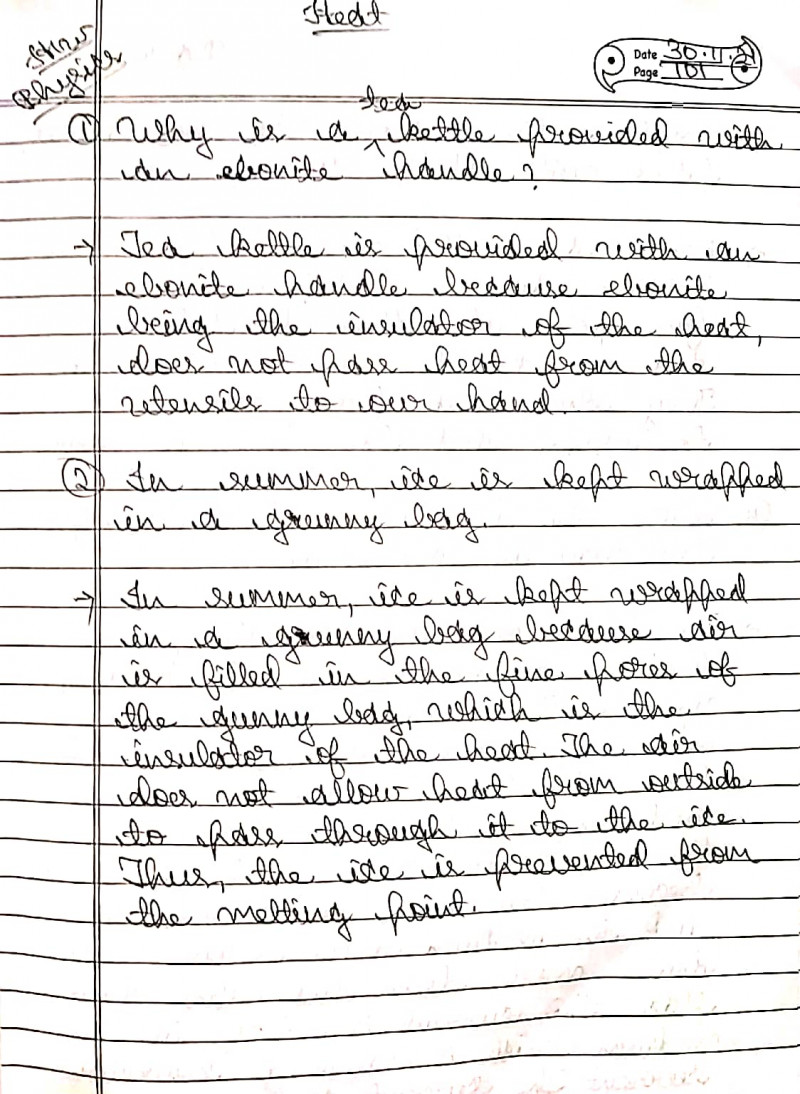 Heat
Physics
Date 30.11.21
Page 101
tea
① Why is a ^ kettle provided with
an ebonite handle?
→ Tea kettle is provided with an
ebonite handle because ebonite
being the insulator of the heat,
does not pass heat from the
utensils to our hand.
② In summer, ice is kept wrapped
in a gunny bag.
→ In summer, ice is kept wrapped
in a gunny bag because air
is filled in the fine pores of
the gunny bag, which is the
insulator of the heat. The air
does not allow heat from outside
to pass through it to the ice.
Thus, the ice is prevented from
the melting point.